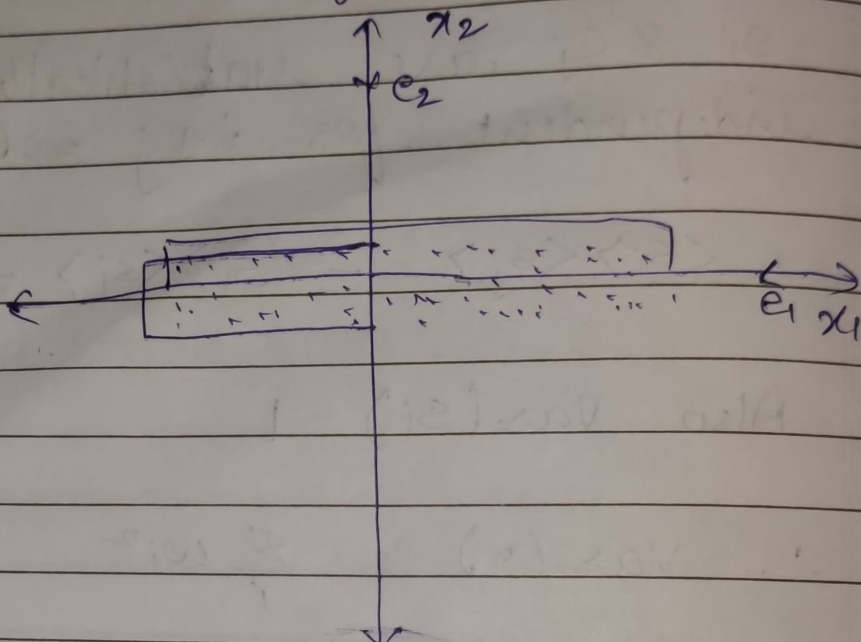 x2
e2
e1 x1